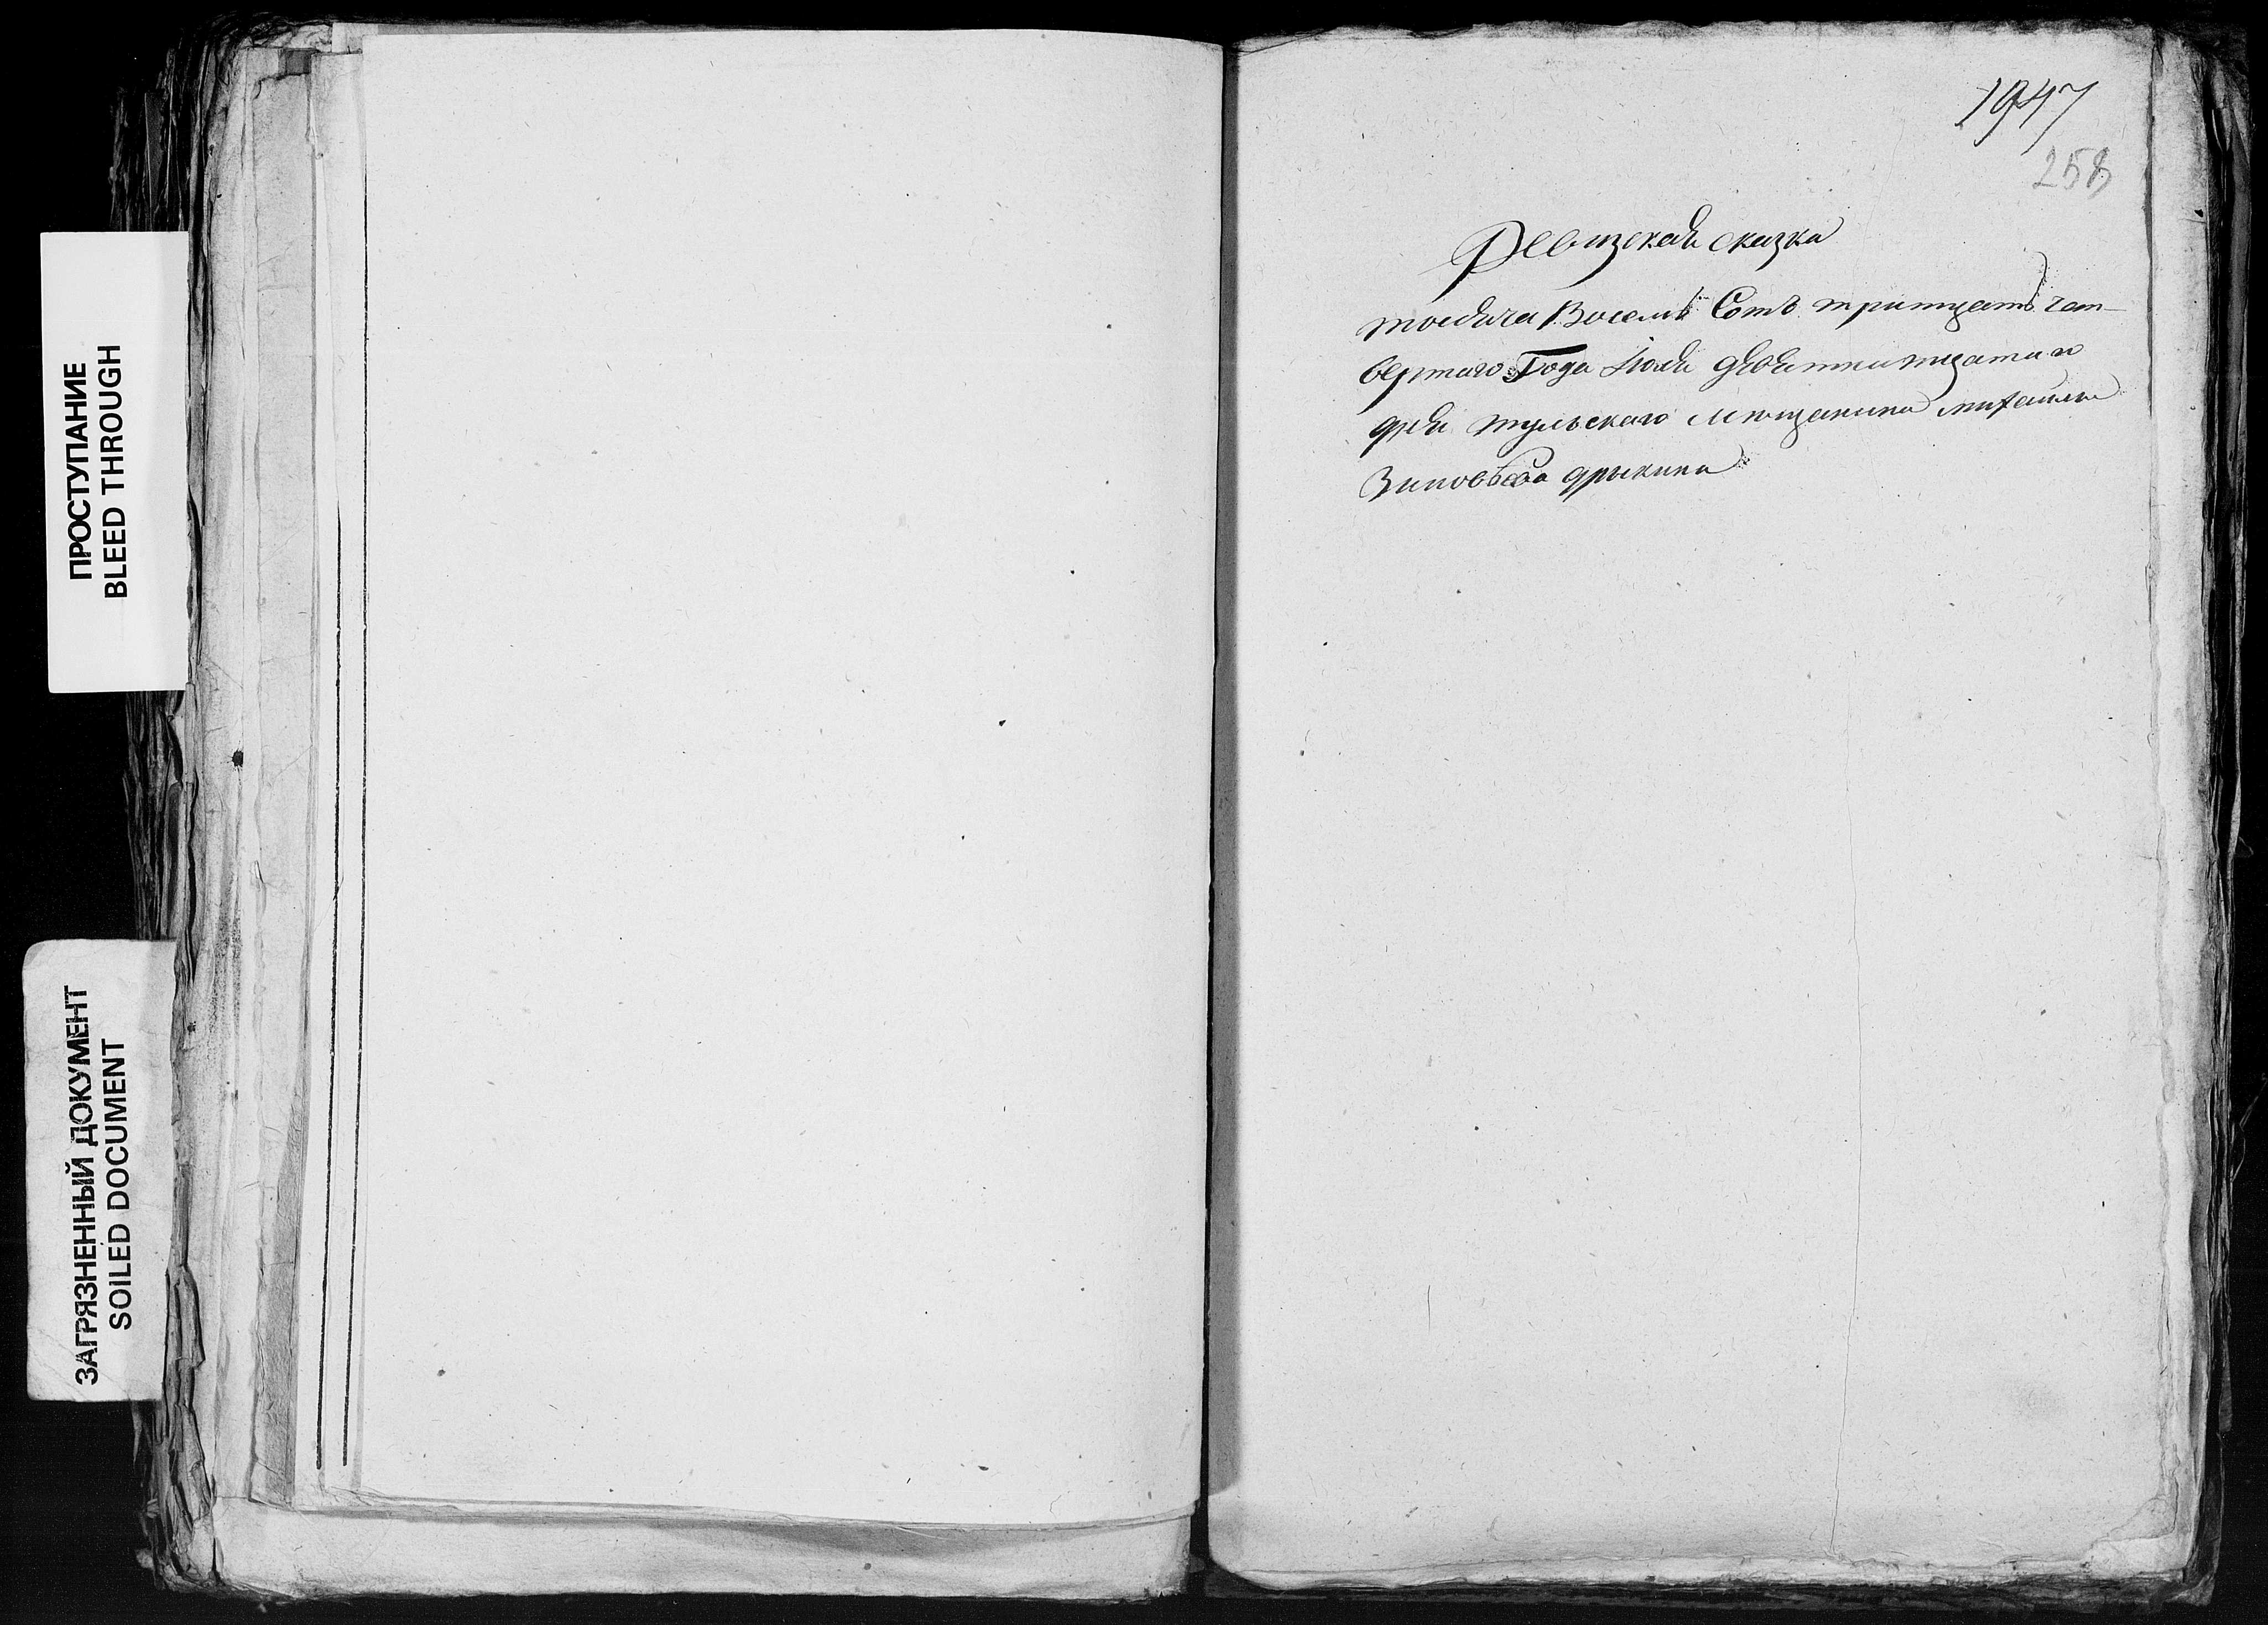 ПРОСТУПАНИЕ
BLEED THROUGH
ЗАГРЯЗНЕННЫЙ ДОКУМЕНТ
SOILED DOCUMENT
1947
258
Ревизская сказка
тысяча Восемь Сотъ тритцать чет-
вертаго Года Июля девятнатцатаго
дня тульскаго мещанина михаила
Зиновьева дрыкина